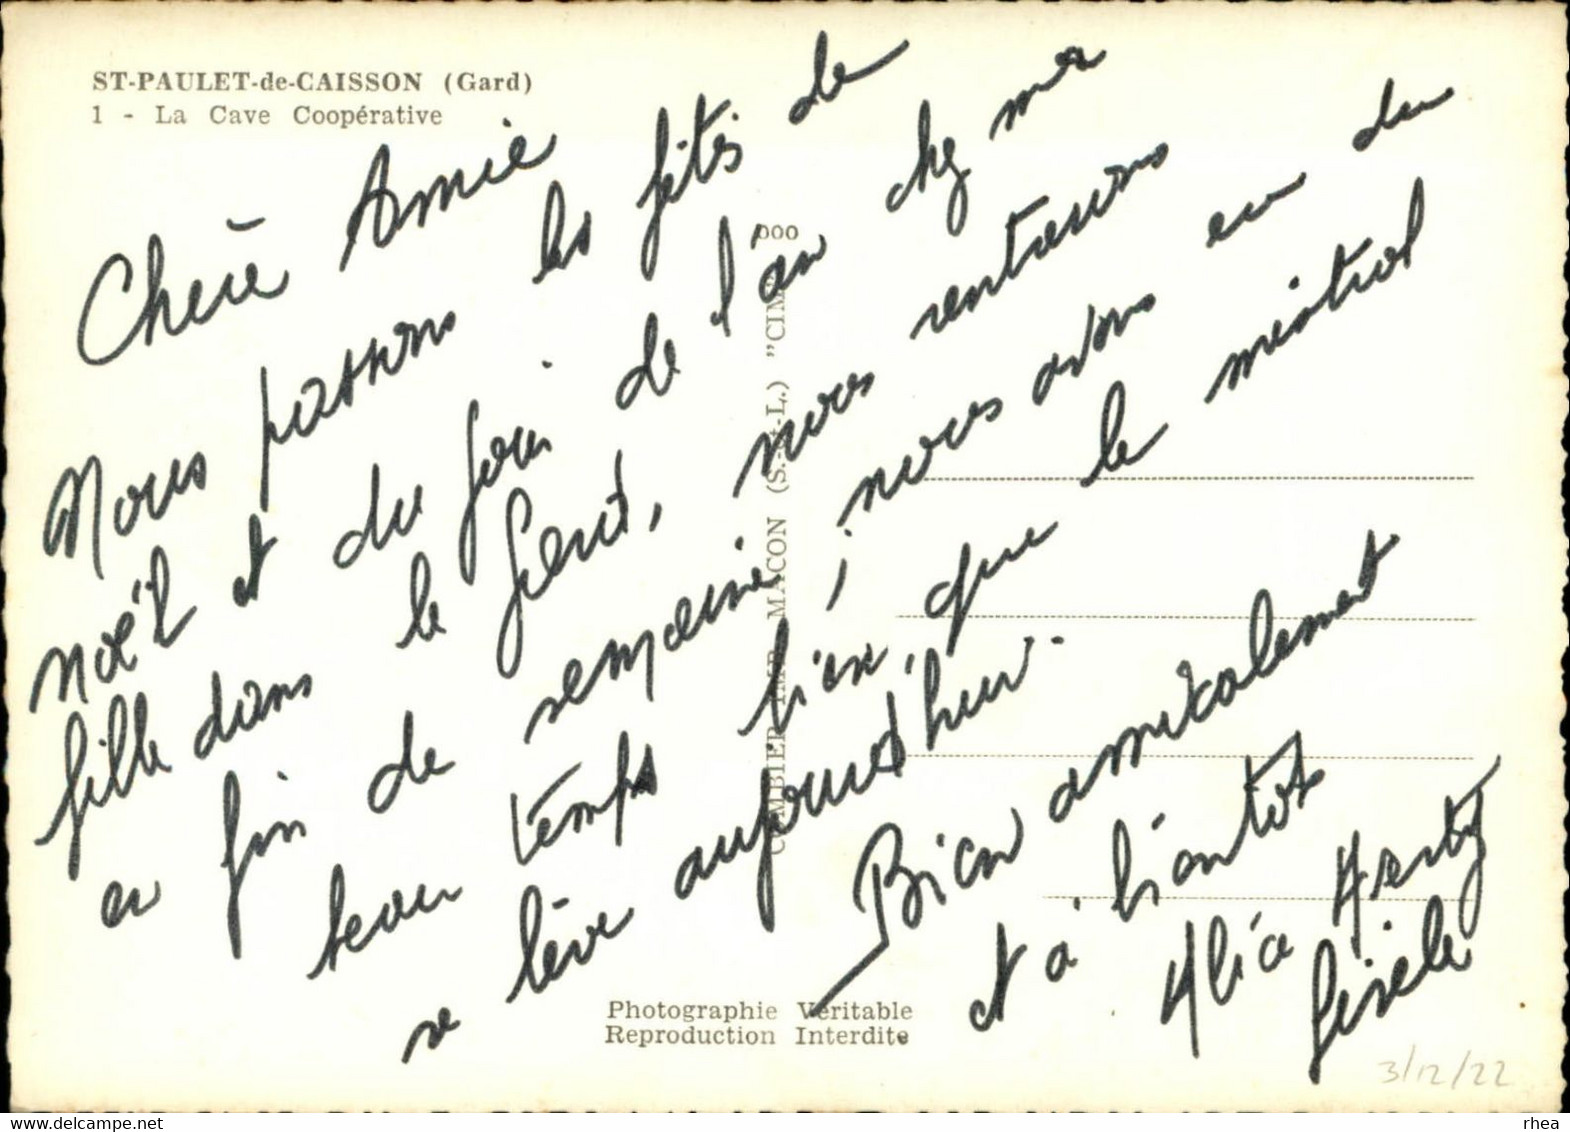 ST-PAULET-de-CAISSON (Gard)
1 - La Cave Coopérative
Chère Amie
Nous passons les fêtes de
noël et du jour de l'an chez ma
fille dans le Gard, nous rentrerons
en fin de semaine, nous avons eu du
beau temps bien que le mistral
se lève aujourd'hui..
Bien amicalement
et à bientot
Gisèle
000
COMBIER IMP. MACON (S.-*-L.) "CIM"
Photographie Véritable
Reproduction Interdite
3/12/22
delcampe.net
rhea